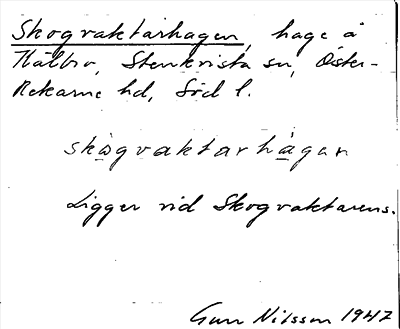 Skogvaktarhagen, hage å
Hälbo, Stenkvista sn, Öster-
Rekarne hd, Söd l.
skògvaktarhàgan
Ligger vid Skogvaktarens.
Gun Nilsson 1947